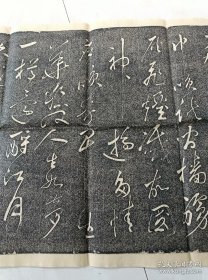 巾談笑間檣艣
灰飛煙滅故國
神遊多情
應笑我早生
華髮人生如夢
一樽還酹江月